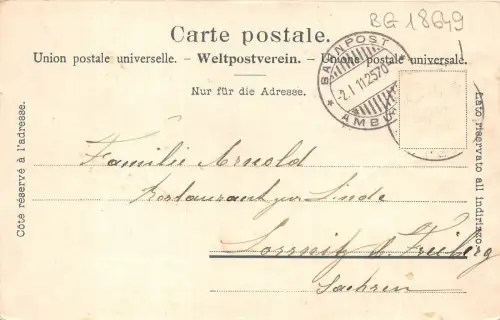 BG 18649
Carte postale.
Union postale universelle. – Weltpostverein. – Unione postale universale.
Nur für die Adresse.
BAHNPOST
-2.I 11.2570
AMBU
Côte réservé à l'adresse.
Lato riservato all indirizzo.
Familie Arnold
Restaurant zur Linde
Lossnitz b. Freiberg
Sachsen